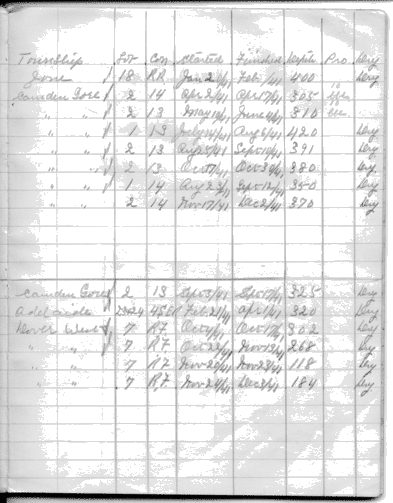 Township Lot Con Started Finished Depth Pro Dry
Zone 18 RR Jan 2/41 Feb /41 400 Dry
Camden Gore 2 14 Apr 2/41 Apr 17/41 305
" " 2 13 May 19/41 June 4/41 310
" " 1 13 July 24/41 Aug 6/41 420 Dry
" " 2 13 Aug 25/41 Sept 10/41 391 Dry
" " 2 13 Oct 17/41 Oct 30/41 380 Dry
" " 1 14 Aug 23/41 Sept 12/41 350 Dry
2 14 Nov 17/41 Dec 2/41 370 Dry
Camden Gore 2 13 Sept 3/41 Sept 17/41 325 Dry
Adelaide 4SER Feb 21/41 Apr 1/41 320 Dry
Dover West 7 R7 Oct 4/41 Oct 17/41 302 Dry
" " 7 R7 Oct 22/41 Nov 13/41 268 Dry
" " 7 R7 Nov 20/41 Nov 23/41 118 Dry
" " 7 R7 Nov 24/41 Dec 3/41 184 Dry